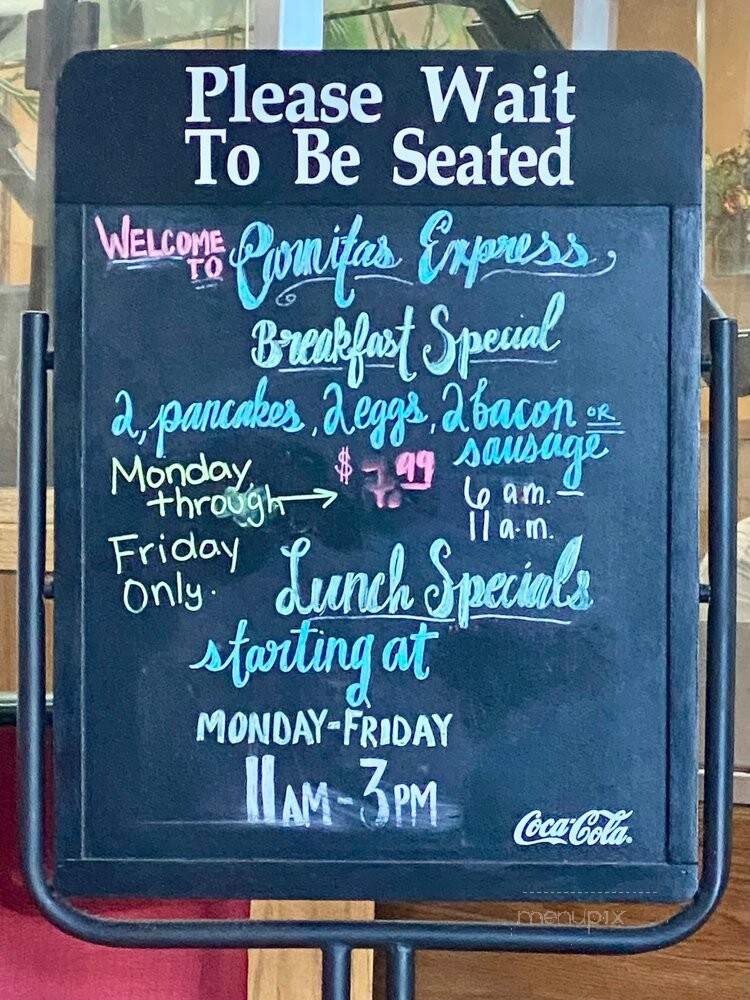 Please Wait
To Be Seated
WELCOME
TO Carnitas Express
Breakfast Special
2, pancakes, 2 eggs, 2 bacon OR
sausage
Monday
through → $ .99
6 am. –
11 a.m.
Friday
Only.
Lunch Specials
starting at
MONDAY-FRIDAY
11AM - 3PM
Coca-Cola
menupix